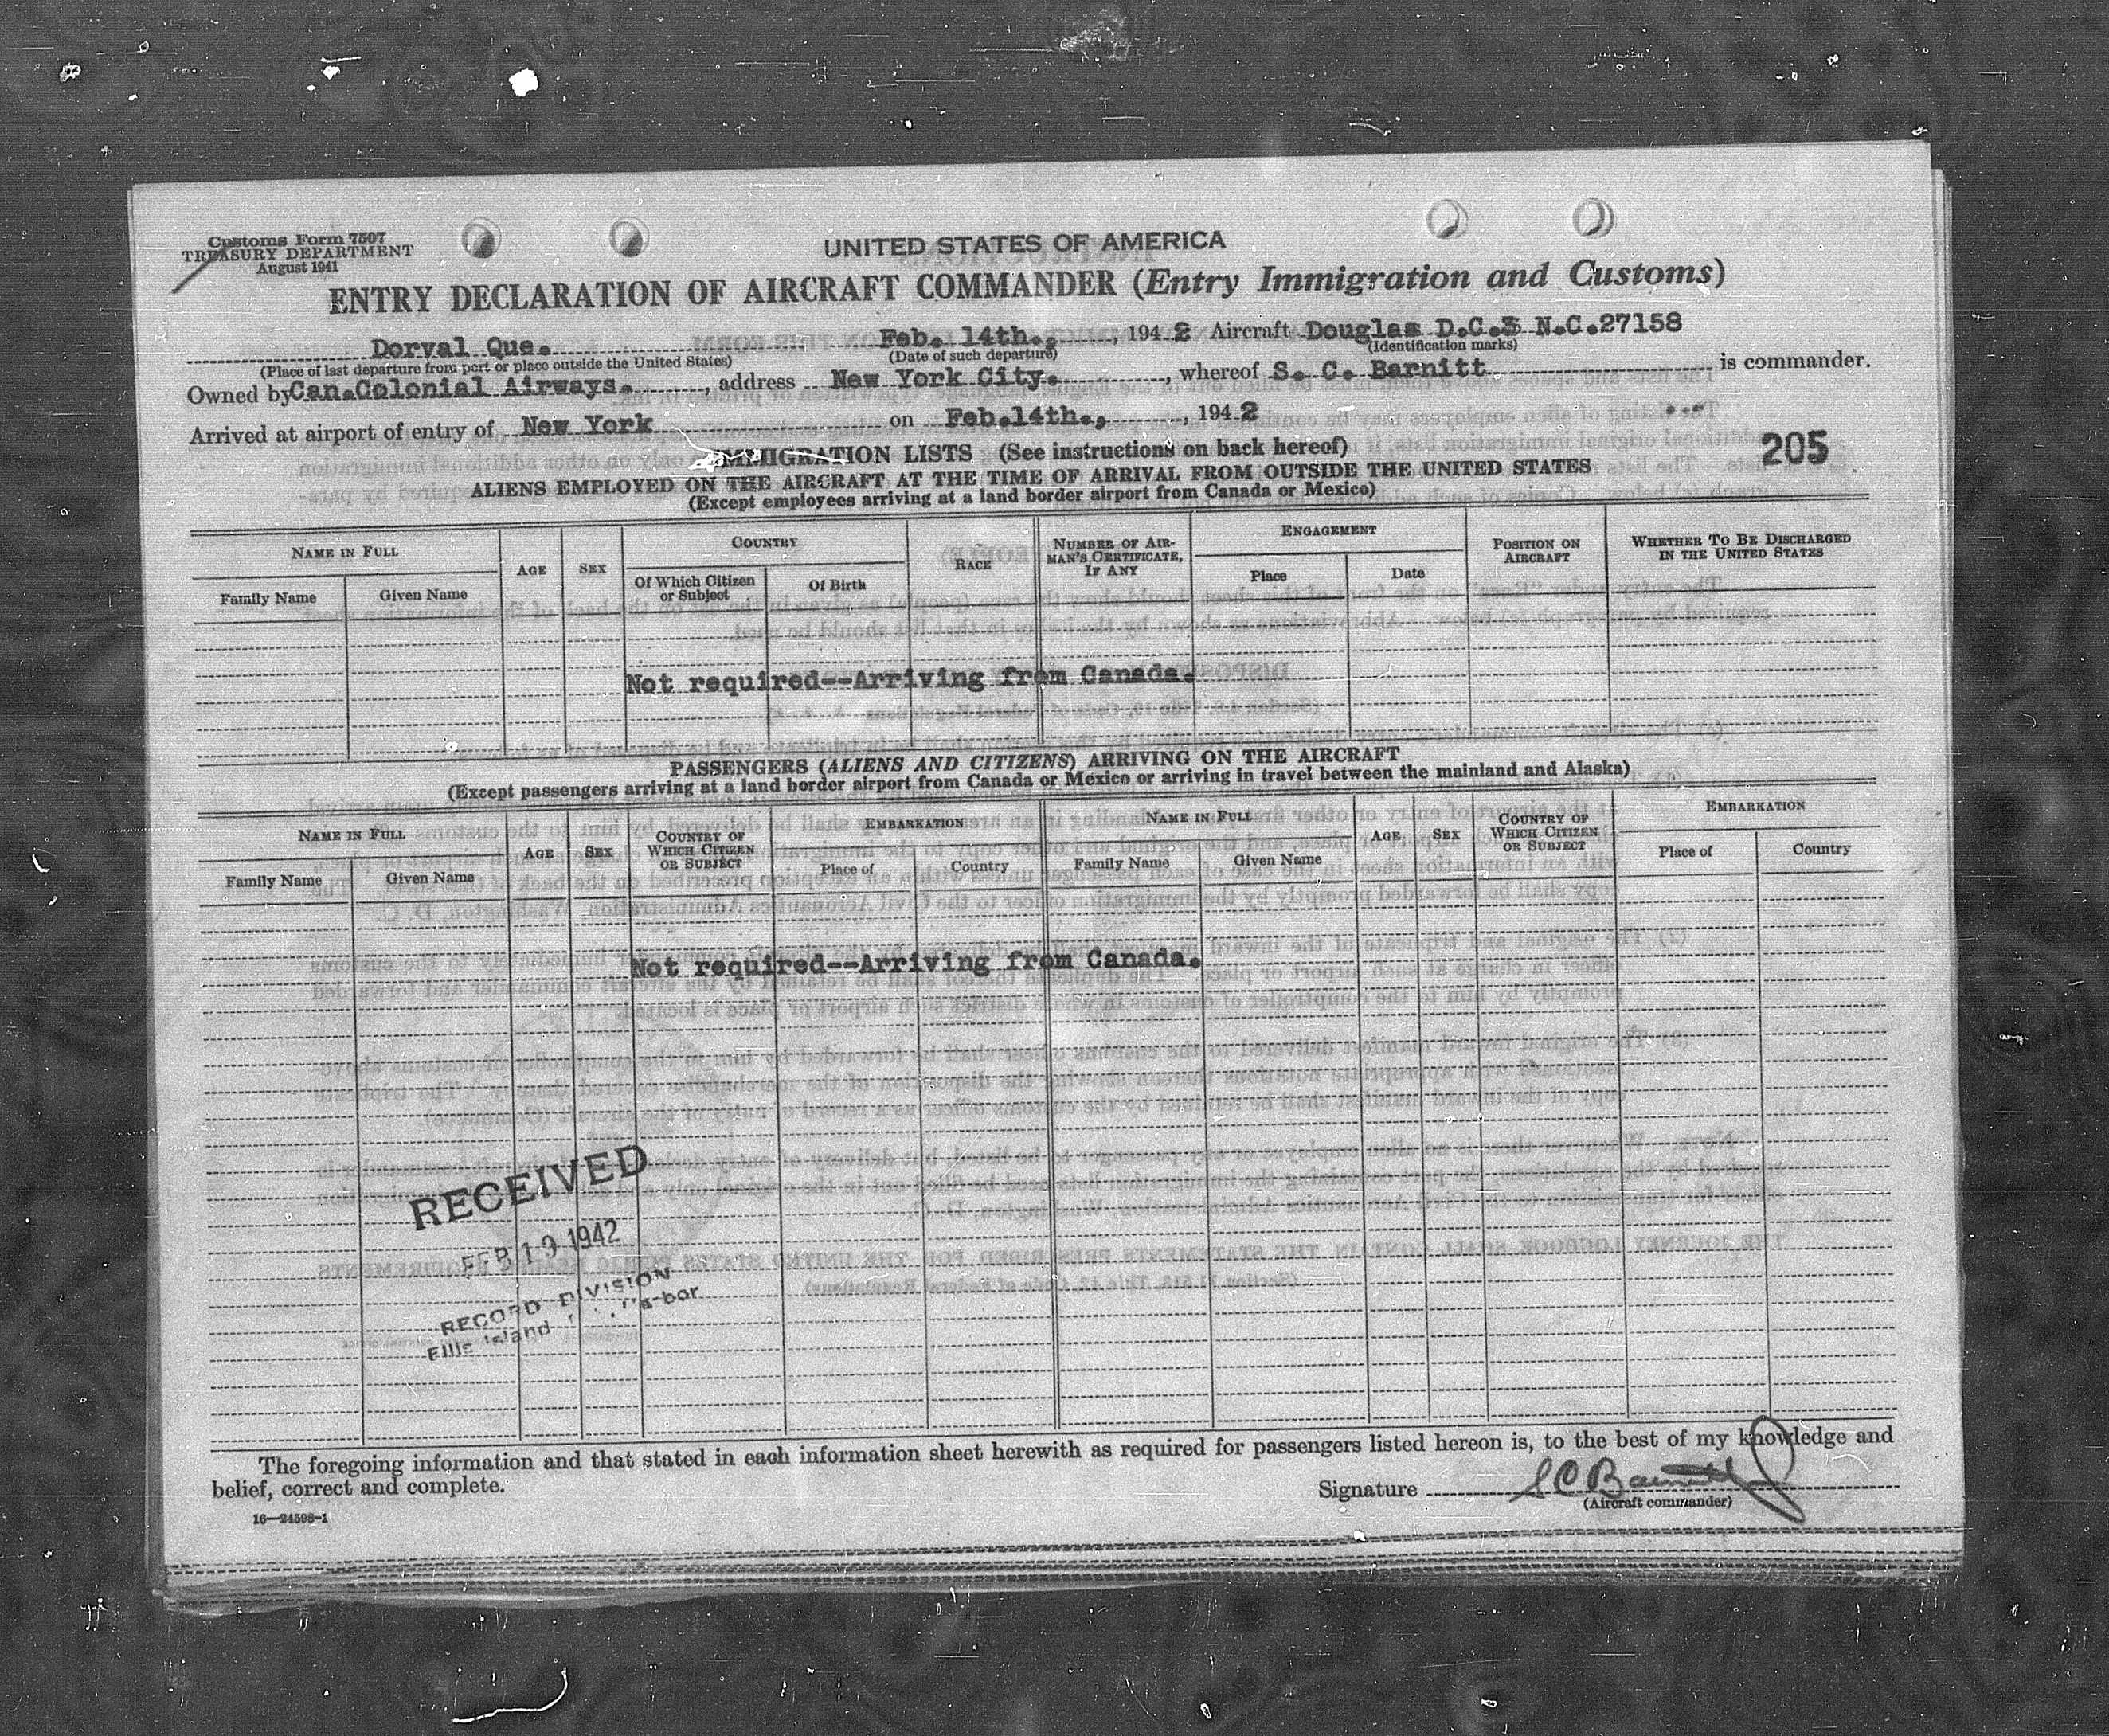 Customs Form 7507
TREASURY DEPARTMENT
August 1941
UNITED STATES OF AMERICA
ENTRY DECLARATION OF AIRCRAFT COMMANDER (Entry Immigration and Customs)
Dorval Que. Feb. 14th., 1942 Aircraft Douglas D.C.3 N.C.27158
(Place of last departure from port or place outside the United States) (Date of such departure) (Identification marks)
Owned by Can.Colonial Airways., address New York City., whereof S. C. Barnitt is commander.
Arrived at airport of entry of New York on Feb.14th., 1942
205
IMMIGRATION LISTS (See instructions on back hereof)
ALIENS EMPLOYED ON THE AIRCRAFT AT THE TIME OF ARRIVAL FROM OUTSIDE THE UNITED STATES
(Except employees arriving at a land border airport from Canada or Mexico)
NAME IN FULL AGE SEX COUNTRY RACE NUMBER OF AIRMAN'S CERTIFICATE, IF ANY ENGAGEMENT POSITION ON AIRCRAFT WHETHER TO BE DISCHARGED IN THE UNITED STATES
Family Name Given Name Of Which Citizen or Subject Of Birth Place Date
Not required--Arriving from Canada.
PASSENGERS (ALIENS AND CITIZENS) ARRIVING ON THE AIRCRAFT
(Except passengers arriving at a land border airport from Canada or Mexico or arriving in travel between the mainland and Alaska)
NAME IN FULL AGE SEX COUNTRY OF WHICH CITIZEN OR SUBJECT EMBARKATION NAME IN FULL AGE SEX COUNTRY OF WHICH CITIZEN OR SUBJECT EMBARKATION
Family Name Given Name Place of Country Family Name Given Name Place of Country
Not required--Arriving from Canada.
RECEIVED
FEB 19 1942
RECORD DIVISION
Ellis Island
The foregoing information and that stated in each information sheet herewith as required for passengers listed hereon is, to the best of my knowledge and
belief, correct and complete.
Signature S C Barnitt
(Aircraft commander)
16—24598-1